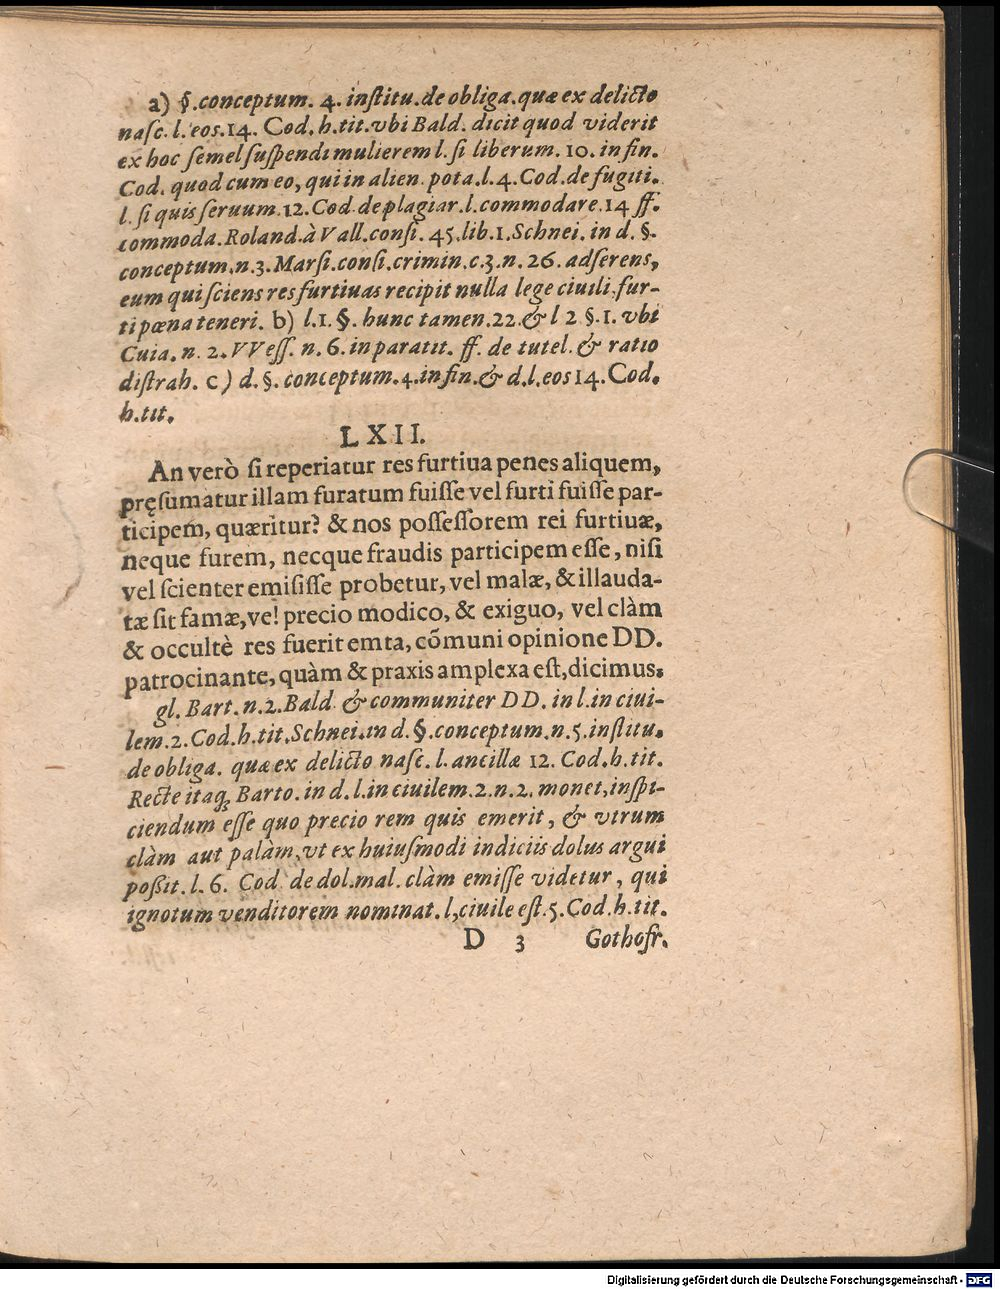 a) §.conceptum. 4. inſtitu.de obliga.quæ ex delicto
naſc. l. eos.14. Cod. h.tit.vbi Bald. dicit quod viderit
ex hoc ſemel ſuſpendi mulierem l. ſi liberum. 10. in fin.
Cod. quod cum eo, qui in alien. pota.l.4. Cod.de fugiti.
l. ſi quis ſeruum.12. Cod. de plagiar.l.commodare.14 ff.
commoda.Roland.à Vall.conſi. 45.lib.1.Schnei. in d. §.
conceptum.n.3.Marſi.conſi.crimin.c.3.n. 26. adſerens,
eum qui ſciens res furtiuas recipit nulla lege ciuili fur-
ti pœna teneri. b) l.1. §. hunc tamen.22.& l 2 §.1. vbi
Cuia. n. 2. VVeſſ. n. 6. in paratit. ff. de tutel. & ratio
diſtrah. c) d. §. conceptum.4.in fin.& d.l.eos 14. Cod.
h.tit.
LXII.
An verò ſi reperiatur res furtiua penes aliquem,
pręſumatur illam furatum fuiſſe vel furti fuiſſe par-
ticipem, quæritur? & nos poſſeſſorem rei furtiuæ,
neque furem, necque fraudis participem eſſe, niſi
vel ſcienter emiſiſſe probetur, vel malæ, & illauda-
tæ ſit famæ, vel precio modico, & exiguo, vel clàm
& occultè res fuerit emta, cõmuni opinione DD.
patrocinante, quàm & praxis amplexa eſt, dicimus.
gl. Bart. n.2. Bald. & communiter DD. in l. in ciui-
lem.2. Cod.h.tit.Schnei.in d. §.conceptum.n.5.inſtitu.
de obliga. quæ ex delicto naſc. l. ancillæ 12. Cod.h.tit.
Recte itaq; Barto. in d. l. in ciuilem.2.n.2. monet,inſpi-
ciendum eſſe quo precio rem quis emerit, & vtrum
clàm aut palàm,vt ex huiuſmodi indiciis dolus argui
poßit. l. 6. Cod. de dol.mal. clàm emiſſe videtur, qui
ignotum venditorem nominat. l,ciuile eſt.5.Cod.h.tit.
D 3 Gothofr.
Digitalisierung gefördert durch die Deutsche Forschungsgemeinschaft - DFG